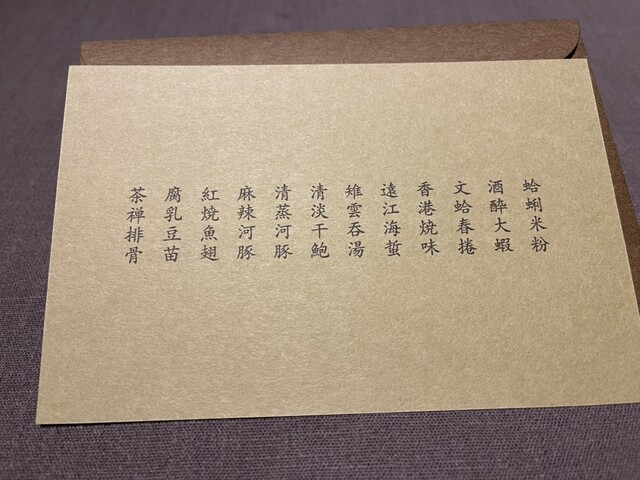 蛤蜊米粉
酒酔大蝦
文蛤春捲
香港焼味
遠江海蜇
雉雲吞湯
清淡干鮑
清蒸河豚
麻辣河豚
紅焼魚翅
腐乳豆苗
茶禅排骨